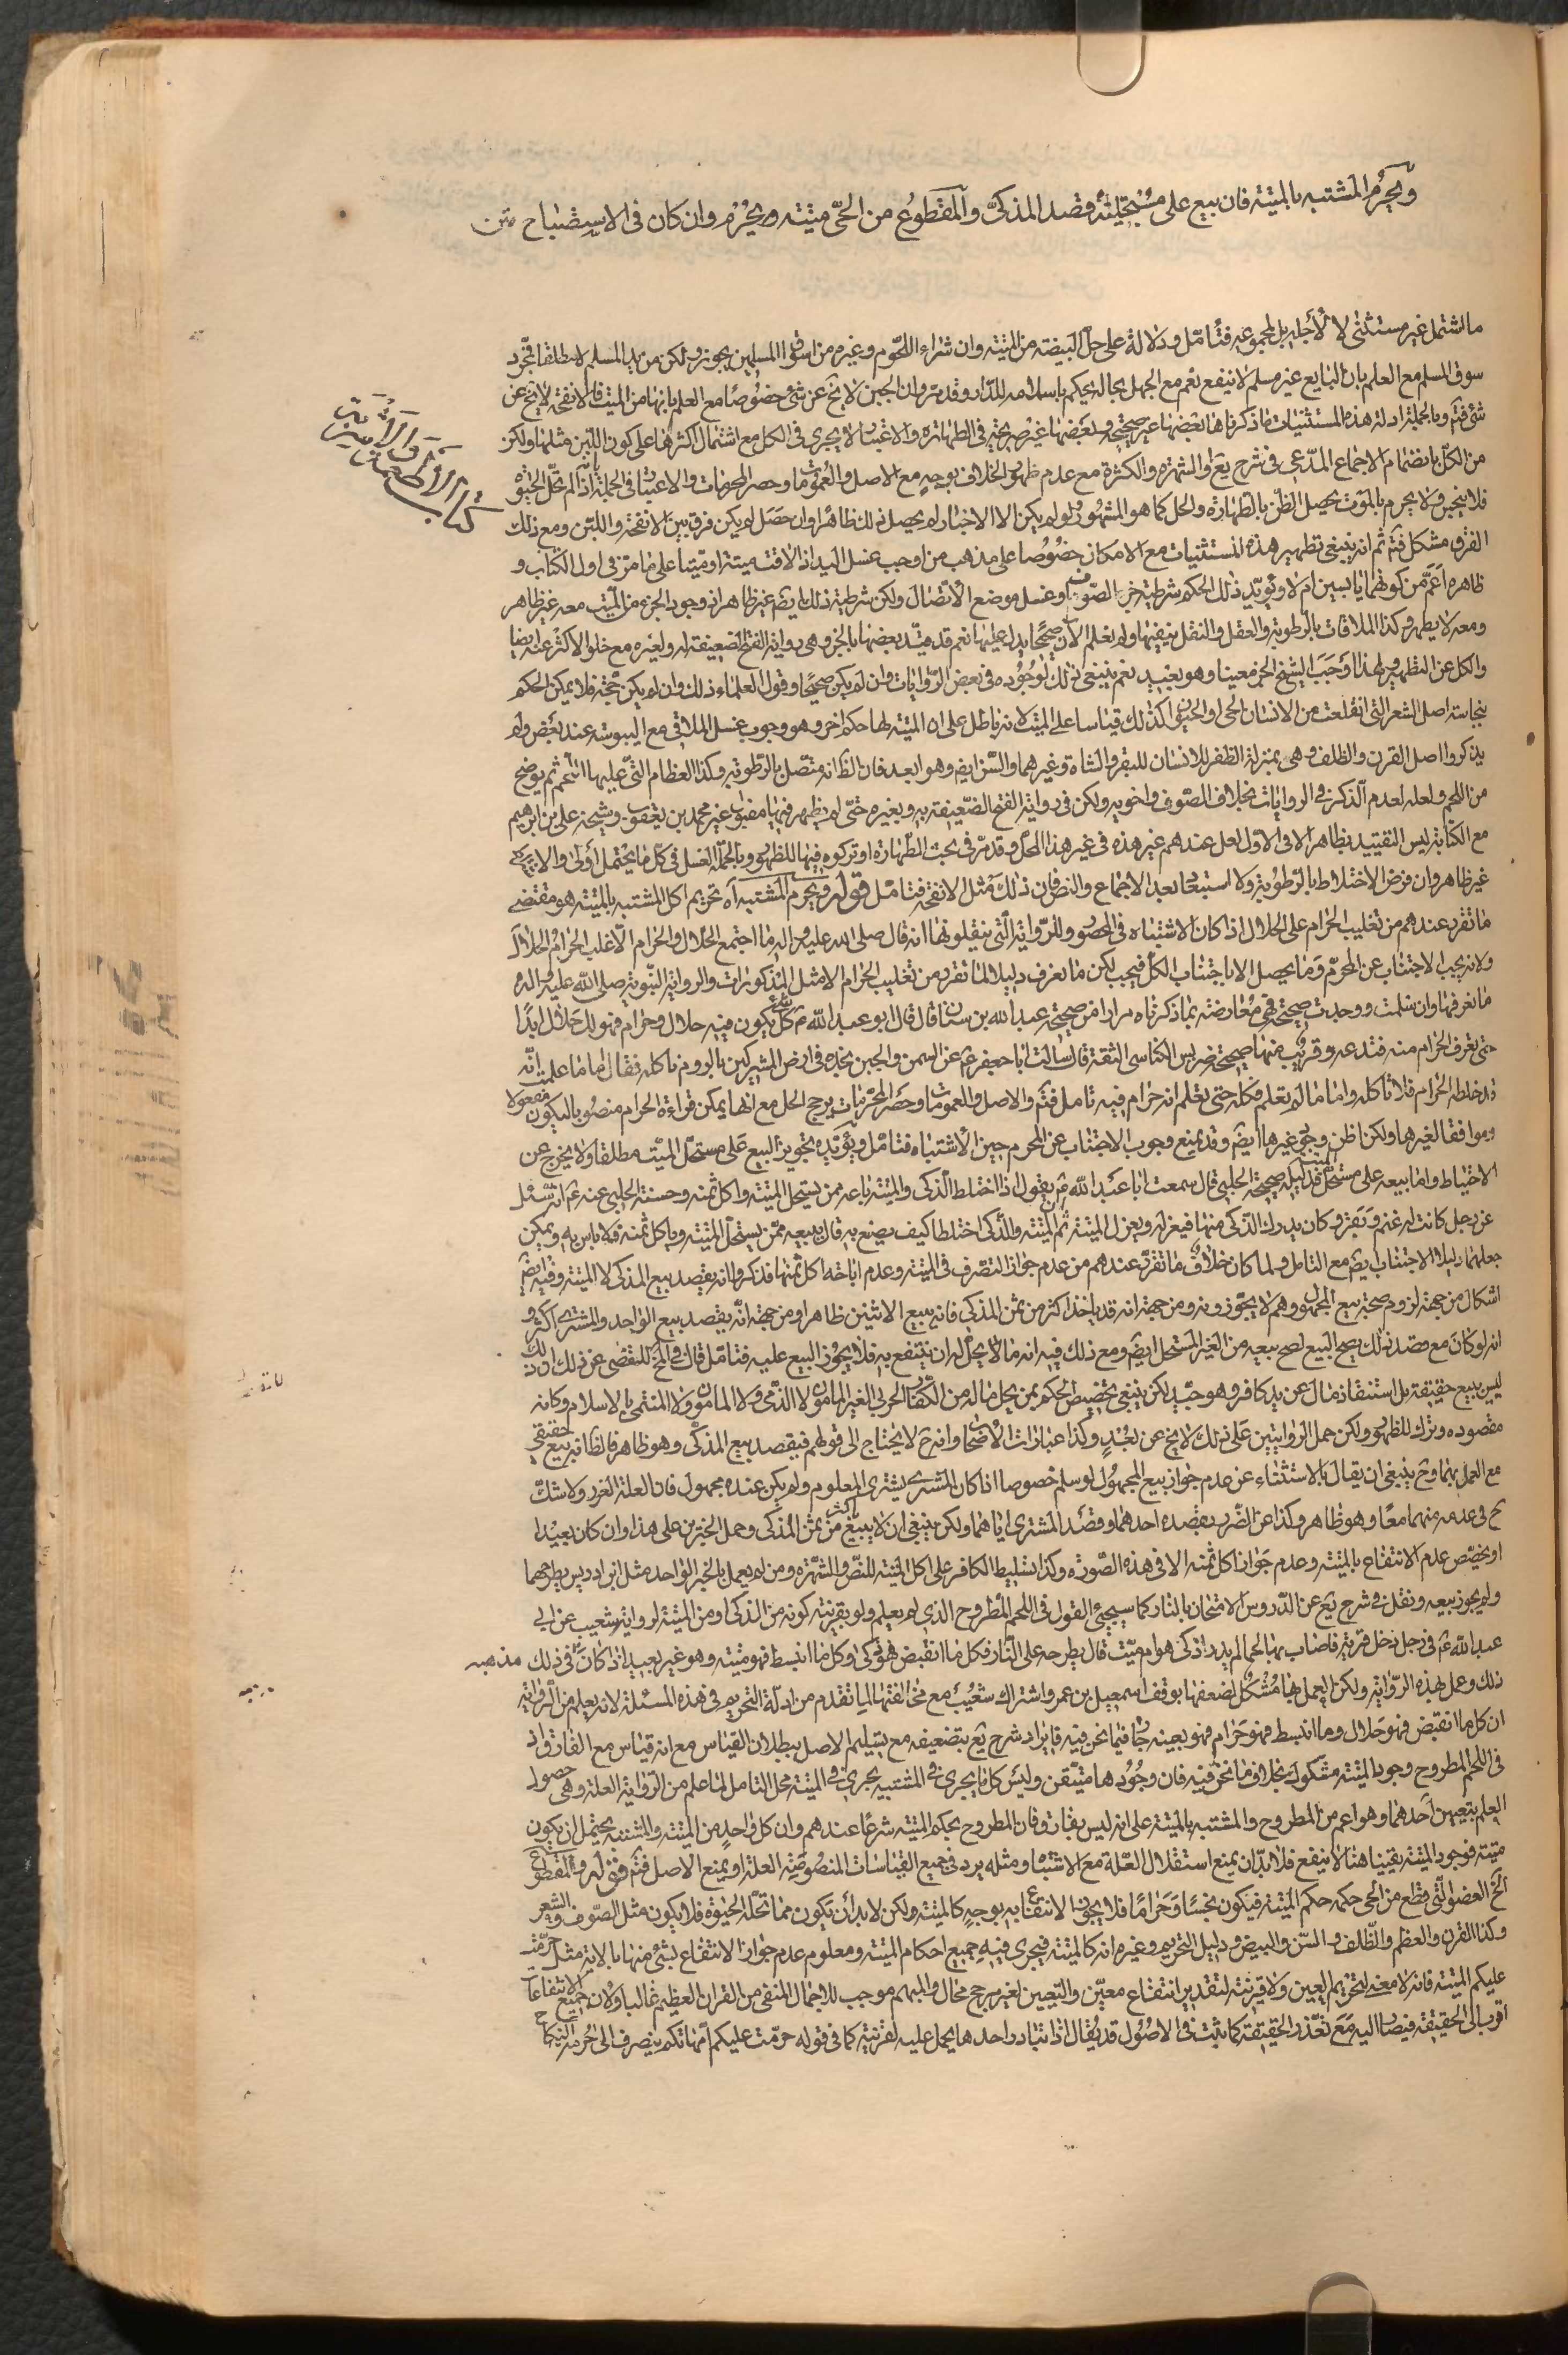 ويحرم المشتبه بالميتة فان بيع على مستحليه قصد المذكى والمقطوع من الحى ميتة ويحرم وان كان فى الاستصباح متن
كتاب الاطعمة والاشربة
ما اشتمل غير مستثنى لا لأجله بل لمجموعه فتأمل ودلالة على حل البيضة من الميتة وان شراء اللحوم وغيره من اسواق المسلمين يجوز ولكن من يد المسلم لا مطلقا فمجرد
سوق المسلم مع العلم بان البايع غير مسلم لا ينفع نعم مع الجهل بحاله يحكم باسلامه للدار وقد مر وان الجبن لا يخ عن شئ خصوصا مع العلم بانها من الميتة فالانفحة لا يخ عن
شئ فتم وبالجملة ادلة هذه المستثنيات ما ذكرناها بعضها غير صحيحة وبعضها غير صريحة فى الطهارة والاعتبار لا يجرى فى الكل مع اشتمال اكثرها على كون اللبن مثلها ولكن
من الكل بانضمام الاجماع المدعى فى شرح يع والشهرة والكثرة مع عدم ظهور الخلاف بوجه مع الاصل والعمومات وحصر المحرمات والاعتبار فى الجملة بانه اذا لم تحل الحيوة
فلا ينجس ولا يحرم بالموت يحصل الظن بالطهارة والحل كما هو المشهور ولو لم يكن الا الاخبار لم يحصل ذلك ظاهرا وان حصل لم يكن فرق بين الانفحة واللبن ومع ذلك
الفرق مشكل فتم ثم انه ينبغى تطهير هذه المستثنيات مع الامكان خصوصا على مذهب من اوجب غسل اليد اذا لاقت ميتة او ميتا على ما مر فى اول الكتاب و
ظاهره اعم من كونهما يابسين ام لا ويؤيد ذلك الحكم شرطية جز الصوف او غسل موضع الاتصال ولكن شرطية ذلك ايض غير ظاهر اذ وجود الجزء من الميت معه غير ظاهر
ومعه لا يطهر وكذا الملاقات بالرطوبة والعقل والنقل ينفيها ولم نعلم الآن صحيحا يدل عليها نعم قد قيد بعضها بالجز وهى رواية الفتح الضعيفة به ولغيره مع خلو الاكثر عنه ايضا
والكل عن التطهير لهذا اوجب الشيخ الجز معينا وهو بعيد نعم ينبغى ذلك لوجوده فى بعض الروايات وان لم يكن صحيحا وقول العلماء ذلك وان لم يكن حجة فلا يمكن الحكم
بنجاسة اصل الشعر التى انقلعت من الانسان الحى او الحيوان كذلك قياسا على الميت لانه باطل على ان الميتة لها حكم اخر وهو وجوب غسل الملاقى مع اليبوسة عند بعض ولم
يذكروا اصل القرن والظلف وهى بمنزلة الظفر للانسان للبقر والشاة وغيرهما والسن ايض وهو ابعد فان الظ انه متصل بالرطوبة وكذا العظام التى عليها اللحم ثم يوضح
من اللحم ولعله لعدم الذكر فى الروايات بخلاف الصوف واخويه ولكن فى رواية الفتح الضعيفة به وبغيره حتى لم يظهر فيها مقبول غير محمد بن يعقوب وشيخه على بن ابرهيم
مع الكتابة ليس التقييد بظاهر الا فى الاول لعل عندهم غير هذه فى غير هذا المحل وقد مر فى بحث الطهارة او تركوه فيها للظهور وبالجملة الغسل فى كل ما يحتمل أولى والا
غير ظاهر وان فرض الاختلاط بالرطوبة ولا استبعاد بعد الاجماع والنص فان ذلك مثل الانفحة فتامل قوله ويحرم المشتبه آه تحريم اكل المشتبه بالميتة هو مقتضى
ما تقرر عندهم من تغليب الحرام على الحلال اذا كان الاشتباه فى المحصور وللرواية التى ينقلونها انه قال صلى الله عليه واله ما اجتمع الحلال والحرام الا غلب الحرام الحلال
ولانه يجب الاجتناب عن المحرم وما يحصل الا باجتناب الكل فيجب لكن ما نعرف دليلا لما تقرر من تغليب الحرام الا مثل المذكورات والرواية النبوية صلى الله عليه واله
ما نعرفها وان سلمت ووجدت صحيحة فهى معارضة بما ذكرناه مرارا من صحيحة عبد الله بن سنان قال قال ابو عبد الله ع كل شئ يكون فيه حلال وحرام فهو لك حلال ابدا
حتى تعرف الحرام منه فتدعه وقريب منها صحيحة ضريس الكناسى الثقة قال سالت ابا جعفر ع عن السمن والجبن نجده فى ارض المشركين بالروم نأكله فقال اما ما علمت انه
قد خلطه الحرام فلا تاكله واما ما لم تعلم فكله حتى تعلم انه حرام فيه تامل فتم والاصل والعمومات وحصر المحرمات يرجح الحل مع انها يمكن قراءة الحرام منصوبا ليكون مفعولا
وموافقا لغيرها ولكن اظن وجود غيرها ايض وقد يمنع وجوب الاجتناب عن المحرم حين الاشتباه فتامل ويؤيده تجويز البيع على مستحل الميت مطلقا ولا يخرج عن
الاحتياط واما بيعه على مستحل الميتة فدليله صحيحة الحلبى قال سمعت ابا عبد الله ع يقول اذا اختلط الذكى والميتة باعه ممن يستحل الميتة واكل ثمنه وحسنة الحلبى عنه ع انه سئل
عن رجل كانت له غنم وبقر وكان يدرك الذكى منها فيعزله ويعزل الميتة ثم ان الميتة والذكى اختلطا كيف يصنع به قال يبيعه ممن يستحل الميتة وياكل ثمنه فلا باس به ويمكن
جعلهما دليلا لاجتناب ايض مع التامل ولما كان خلاف ما تقرر عندهم من عدم جواز التصرف فى الميتة وعدم اباحة اكل ثمنها فذكروا انه يقصد بيع المذكى لا الميتة وفيه ايض
اشكال من جهة لزوم صحة بيع المجهول وهم لا يجوزونه ومن جهة انه قد ياخذ اكثر من ثمن المذكى فانه يبيع الاثنين ظاهرا ومن جهة انه يقصد بيع الواحد والمشترى اكثر و
انه لو كان مع قصد ذلك يصح البيع لصح بيعه من الغير المستحل ايض ومع ذلك فيه انه ما لا يحل له ان ينتفع به فلا يجوز البيع عليه فتامل قال فى لف للتقصى عن ذلك
ليس بيع حقيقة بل استنقاذ مال عن يد كافر وهو جيد لكن ينبغى تخصيص الحكم بمن يحل ماله من الكفار الحربى الغير المامون لا الذمى ولا المامون ولا المنتمى بالاسلام وكانه
مقصوده وترك للظهور ولكن حمل الروايتين على ذلك لا يخ عن بعد وكذا عبارات الاصحاب وانه ح لا يحتاج الى قولهم فيقصد بيع المذكى وهو ظاهر فالظ انه بيع حقيقى
مع العمل بهما وح ينبغى ان يقال بالاستثناء عن عدم جواز بيع المجهول لو سلم خصوصا اذا كان المشترى يشترى المعلوم ولم يكن عنده مجهول فان العلة الغرر ولا شك
ح فى عدمه منهما معا وهو ظاهر وكذا عن الضرر بقصده احدهما وقصد المشترى اياهما ولكن ينبغى ان لا يبيع باكثر من ثمن المذكى وحمل الخبرين على هذا وان كان بعيدا
او يخصص عدم الانتفاع بالميتة وعدم جواز اكل ثمنه الا فى هذه الصورة وكذا تسليط الكافر على اكل الميتة للنص والشهرة ومن لم يعمل بالخبر الواحد مثل ابن ادريس يطرحهما
ولم يجوز بيعه ونقل فى شرح يع عن الدروس الامتحان بالنار كما سيجئ القول فى اللحم المطروح الذى لم يعلم ولو بقرينة كونه من الذكى او من الميتة لرواية شعيب عن ابى
عبد الله ع فى رجل دخل قرية فاصاب بها لحما لم يدر اذكى هو ام ميت قال يطرحه على النار فكل ما انقبض فهو ذكى وكل ما انبسط فهو ميتة وهو غير بعيد اذا كان فى ذلك مذهبه
ذلك وعمل بهذه الرواية ولكن العمل بها مشكل لضعفها بوقف اسمعيل بن عمر واشتراك شعيب مع مخالفتها لما تقدم من ادلة التحريم فى هذه المسئلة لانه يعلم من الرواية
ان كل ما انقبض فهو حلال وما انبسط فهو حرام فهو بعينه جار فيما نحن فيه فايراد شرح يع بتضعيفه مع تسليم الاصل ببطلان القياس مع انه قياس مع الفارق اذ
فى اللحم المطروح وجود الميتة مشكوك بخلاف ما نحن فيه فان وجودها متيقن وليس كل ما يجرى فى المشتبه يجرى فى الميتة محل التامل لما علم من الرواية العلة وهى حصول
العلم بتعيين احدهما وهو اعم من المطروح والمشتبه بالميتة على انه ليس بفارق فان المطروح بحكم الميتة شرعا عندهم وان كل واحد من الميتة والمشتبه يحتمل ان يكون
ميتة فوجود الميتة يقينا هنا لا ينفع فلا بد ان يمنع استقلال العلة مع الاشتباه ومثله يرد فى جميع القياسات المنصوصة العلة او يمنع الاصل فتم قوله والمقطوع
الخ العضو التى قطع من الحى حكمه حكم الميتة فيكون نجسا وحراما فلا يجوز الانتفاع به بوجه كالميتة ولكن لا بد أن يكون مما تحله الحيوة فلا يكون مثل الصوف والشعر
وكذا القرن والعظم والظلف والسن والبيض ودليل التحريم وغيره انه كالميتة فيجرى فيه جميع احكام الميتة ومعلوم عدم جواز الانتفاع بشئ منها بالاية مثل حرمت
عليكم الميتة فانه لا معنى لتحريم العين ولا قرينة لتقدير انتفاع معين والتعيين لغير مرجح محال والمبهم موجب للاجمال المنفى من القران العظيم غالبا ولان جميع الانتفاعات
اقرب الى الحقيقة فيصار اليه مع تعذر الحقيقة كما ثبت فى الاصول قد يقال اذا تبادر احدها يحمل عليه لقرينة كما فى قوله حرمت عليكم امهاتكم ينصرف الى حرمة النكاح